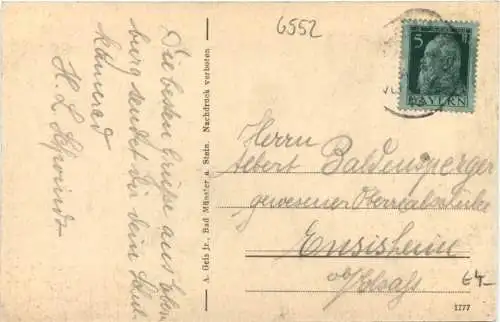 6552
Die besten Grüße aus Eben
burg sendet dir dein Schul
kamerad
H. L. Schwindt
A. Geis jr., Bad Münster a. Stein. Nachdruck verboten
5
BAYERN
Herrn
Albert Baldensperger
gewesener Oberrealschüler
Ensisheim
ob/Elsaß
E4-
1777